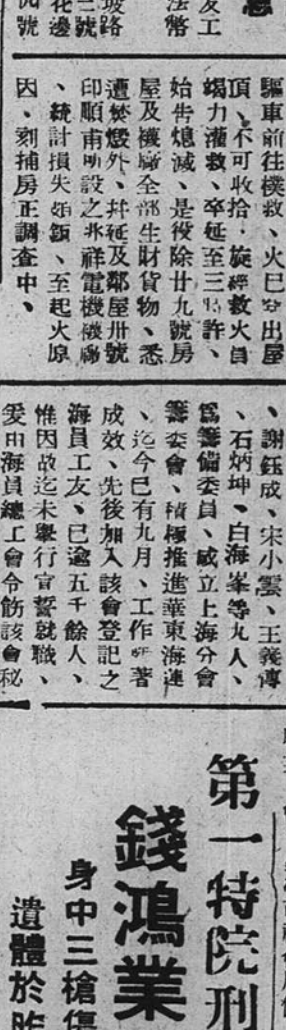 及工
法幣
坡路
二號
花邊
四號
驅車前往樸救、火已穿出屋
頂、不可收拾、旋經救火員
竭力灌救、卒延至三時許、
始告熄滅、是役除廿九號房
屋及襪廠全部生財貨物、悉
遭焚燬外、幷延及鄰屋卅號
印順甫所設之兆祥電機襪廠
、統計損失頗鉅、至起火原
因、刻捕房正調查中、
、謝鈺成、宋小雲、王義傳
、石炳坤、白海峯等九人、
爲籌備委員、成立上海分會
籌委會、積極推進華東海運
、迄今已有九月、工作頗著
成效、先後加入該會登記之
海員工友、已逾五千餘人、
惟因故迄未舉行宣誓就職、
爰由海員總工會令飭該會秘
第一特院刑
錢鴻業
身中三槍傷
遺體於昨